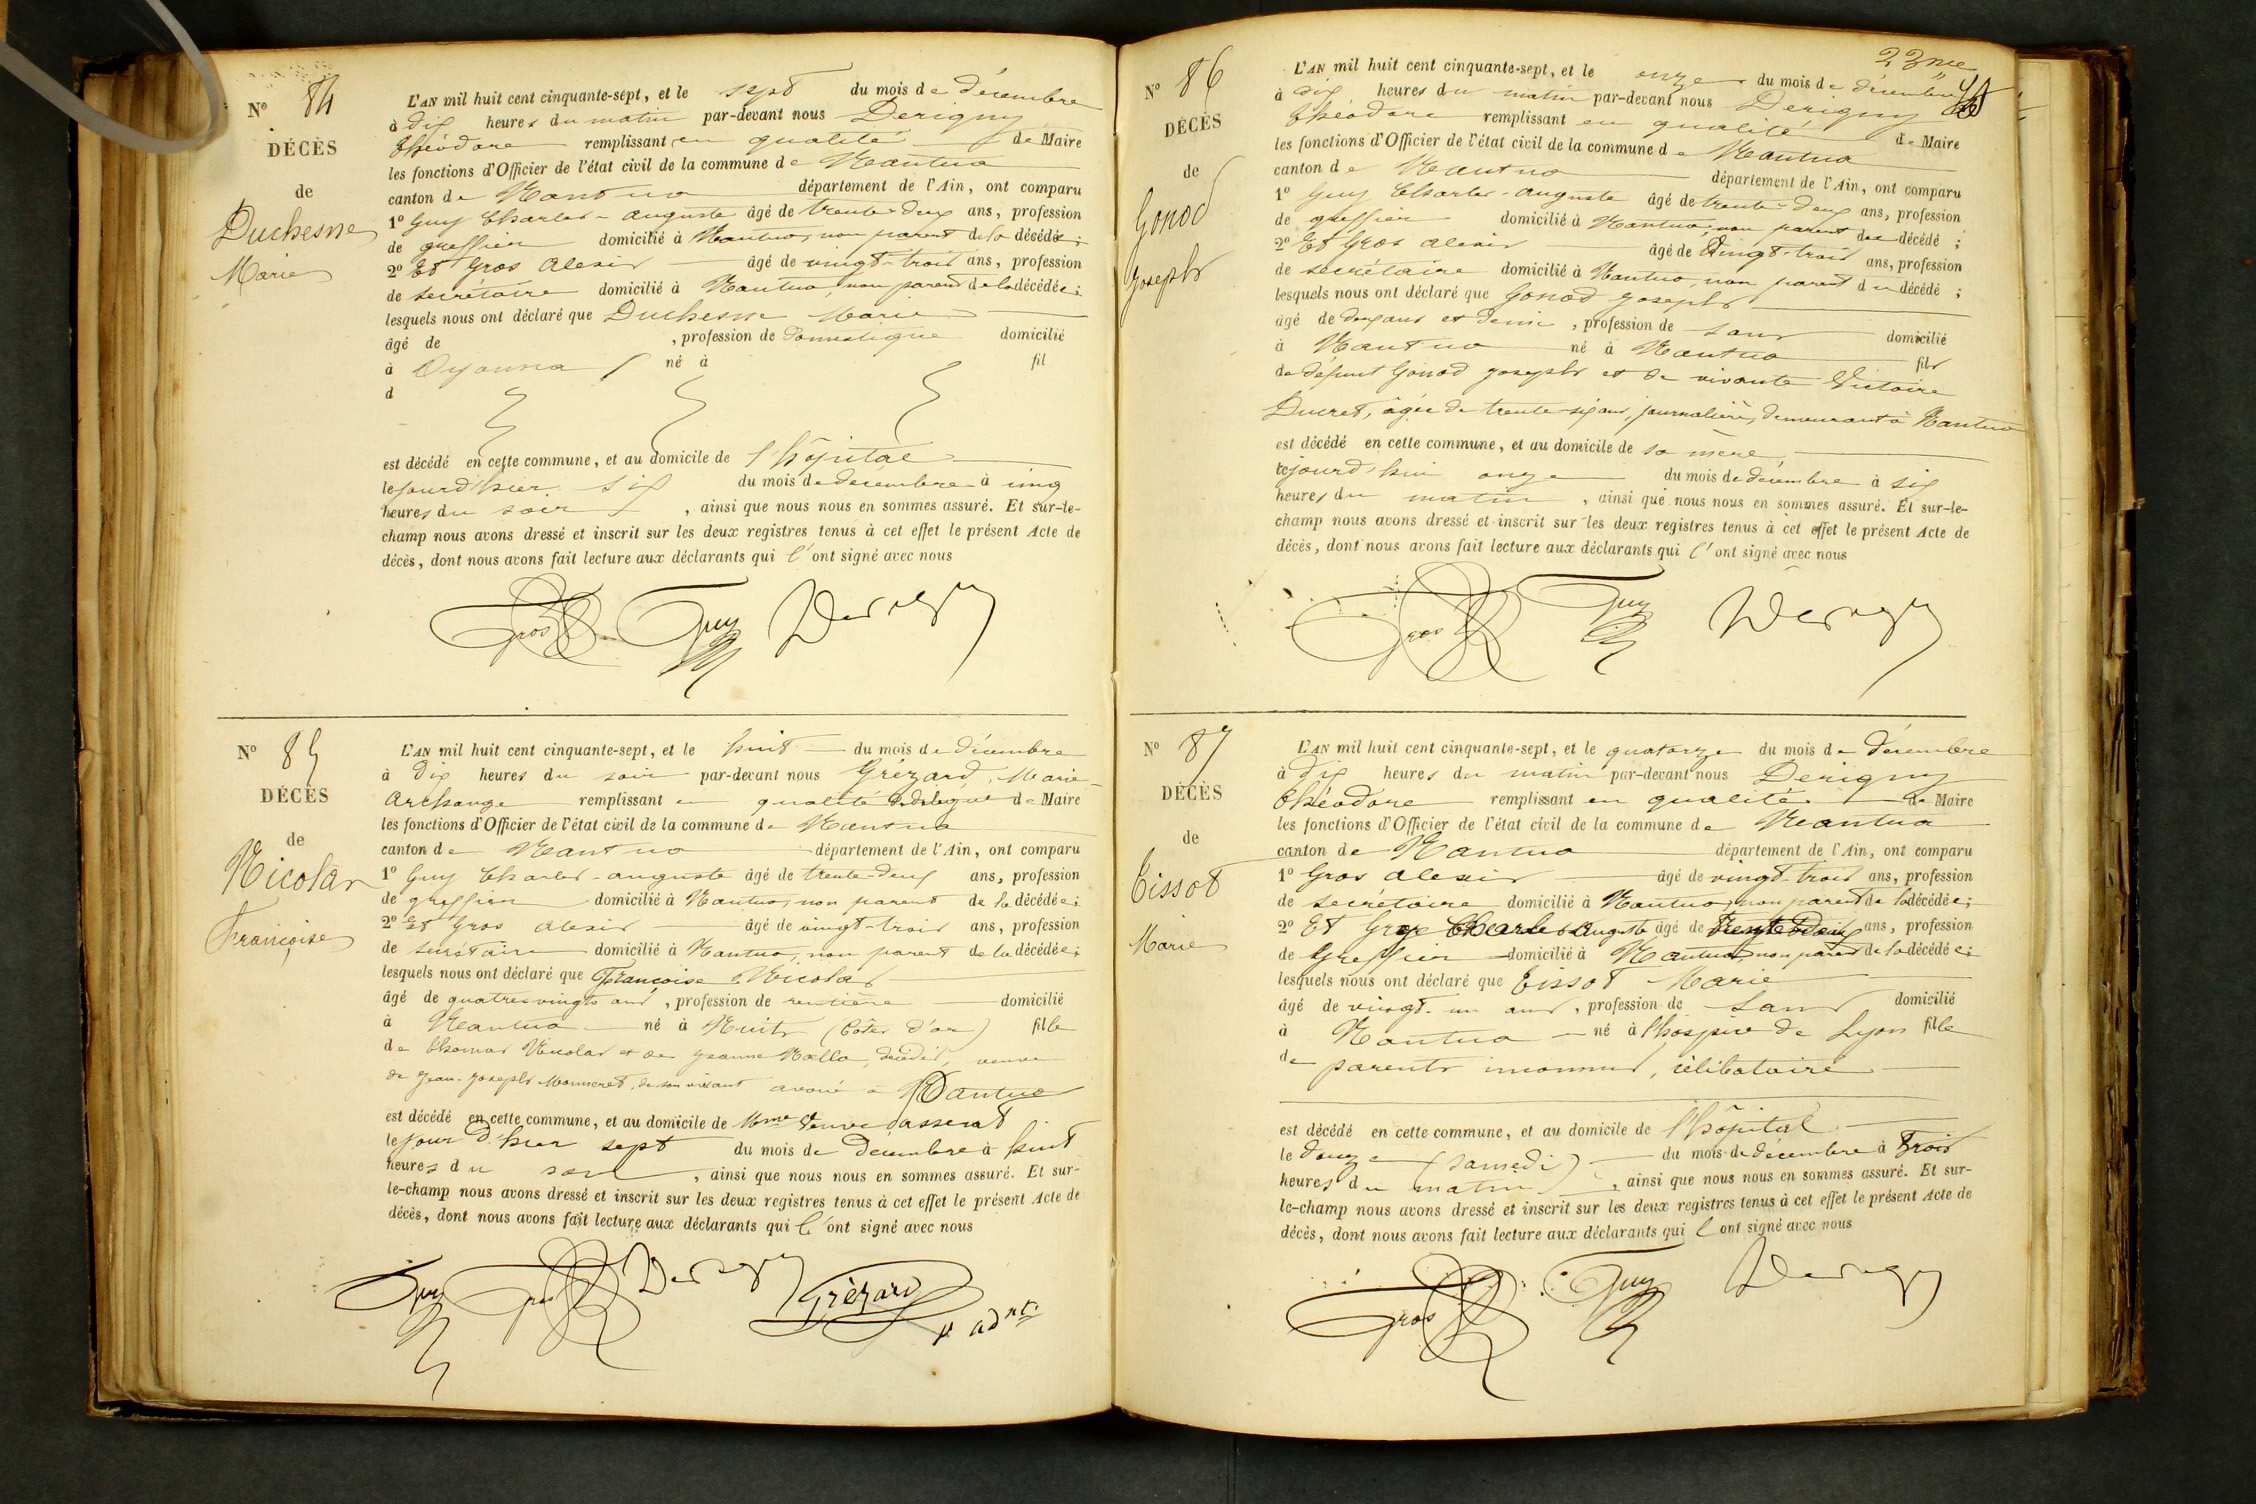 N° 84
DÉCÈS
de
Duchesne
Marie
L'AN mil huit cent cinquante-sept, et le sept du mois de décembre
à dix heures du matin par-devant nous Derigny
théodore remplissant en qualité de Maire
les fonctions d'Officier de l'état civil de la commune de Nantua
canton de Nantua département de l'Ain, ont comparu
1° Guy Charles-auguste âgé de trente-deux ans, profession
de greffier domicilié à Nantua, non parent de la décédée;
2° Et Gros alexis âgé de vingt-trois ans, profession
de secrétaire domicilié à Nantua, non parent de la décédée;
lesquels nous ont déclaré que Duchesne Marie
âgé de , profession de Domestique domicilié
à Oyonna né à fil
d
est décédé en cette commune, et au domicile de l'hôpital
le jourd'hier six du mois de décembre à cinq
heures du soir , ainsi que nous nous en sommes assuré. Et sur-le-
champ nous avons dressé et inscrit sur les deux registres tenus à cet effet le présent Acte de
décès, dont nous avons fait lecture aux déclarants qui l'ont signé avec nous
Gros Guy Derigny
N° 85
DÉCÈS
de
Nicolas
Françoise
L'AN mil huit cent cinquante-sept, et le huit du mois de décembre
à Dix heures du soir par-devant nous Grézard, Marie-
archange remplissant en qualité de délégué de Maire
les fonctions d'Officier de l'état civil de la commune de Nantua
canton de Nantua département de l'Ain, ont comparu
1° Guy Charles-auguste âgé de trente-deux ans, profession
de greffier domicilié à Nantua, non parent de la décédée;
2° Et Gros alexis âgé de vingt-trois ans, profession
de secrétaire domicilié à Nantua, non parent de la décédée;
lesquels nous ont déclaré que Françoise Nicolas
âgé de quatrevingts ans, profession de rentière domicilié
à Nantua né à Nuits (Côtes d'or) fille
de thomas Nicolas et de jeanne décédés, veuve
de jean-joseph de son vivant avoué à Nantua
est décédé en cette commune, et au domicile de Mme Veuve
le jour d'hier sept du mois de Décembre à huit
heures du soir, ainsi que nous nous en sommes assuré. Et sur-
le-champ nous avons dressé et inscrit sur les deux registres tenus à cet effet le présent Acte de
décès, dont nous avons fait lecture aux déclarants qui l'ont signé avec nous
Guy Gros Derigny Grézard
adnt
23me
N° 86
DÉCÈS
de
Gonod
joseph
L'AN mil huit cent cinquante-sept, et le onze du mois de décembre
à dix heures du matin par-devant nous Derigny
théodore remplissant en qualité de Maire
les fonctions d'Officier de l'état civil de la commune de Nantua
canton de Nantua département de l'Ain, ont comparu
1° Guy Charles-auguste âgé de trente-deux ans, profession
de greffier domicilié à Nantua, non parent du décédé;
2° Et Gros alexis âgé de vingt-trois ans, profession
de secrétaire domicilié à Nantua, non parent du décédé;
lesquels nous ont déclaré que Gonod joseph
âgé de deux ans et demi, profession de sans domicilié
à Nantua né à Nantua fils
de défunt Gonod joseph et de vivante Victoire
Ducret, âgée de trente-six ans, journalière, demeurant à Nantua
est décédé en cette commune, et au domicile de sa mère,
le jourd'hui onze du mois de décembre à six
heures du matin, ainsi que nous nous en sommes assuré. Et sur-le-
champ nous avons dressé et inscrit sur les deux registres tenus à cet effet le présent Acte de
décès, dont nous avons fait lecture aux déclarants qui l'ont signé avec nous
Gros Guy Derigny
N° 87
DÉCÈS
de
Tissot
Marie
L'AN mil huit cent cinquante-sept, et le quatorze du mois de décembre
à dix heures du matin par-devant nous Derigny
théodore remplissant en qualité de Maire
les fonctions d'Officier de l'état civil de la commune de Nantua
canton de Nantua département de l'Ain, ont comparu
1° Gros alexis âgé de vingt-trois ans, profession
de secrétaire domicilié à Nantua, non parent de la décédée;
2° Et Guy Charles auguste âgé de trente deux ans, profession
de Greffier domicilié à Nantua, non parent de la décédée;
lesquels nous ont déclaré que Tissot Marie
âgé de vingt-un ans, profession de sans domicilié
à Nantua né à l'hospice de Lyon fille
de parents inconnus, célibataire
est décédé en cette commune, et au domicile de l'hôpital
le douze (samedi) du mois de décembre à Trois
heures du matin, ainsi que nous nous en sommes assuré. Et sur-
le-champ nous avons dressé et inscrit sur les deux registres tenus à cet effet le présent Acte de
décès, dont nous avons fait lecture aux déclarants qui l'ont signé avec nous
Gros Guy Derigny